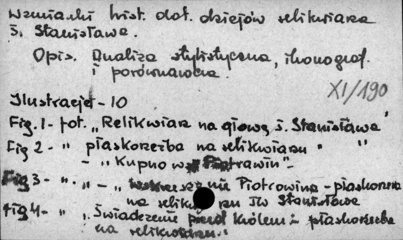 Wzmianki hist. dot. dziejów relikwiarza
ś. Stanisława.
Opis. Analiza stylistyczna, ikonograf.
i porównawcza.
XI/190
Ilustracje - 10
Fig. 1 - fot. „Relikwiarz na głowę ś. Stanisława"
Fig 2 - " płaskorzeźba na relikwiarzu " "
- „Kupno w Piotrawin" -
Fig 3 - " „ - „ nie Piotrowina - płaskorzeźba
na Stanisława
Fig 4 - " „Świadczenie przed Królem - płaskorzeźba
na relikwiarzu."